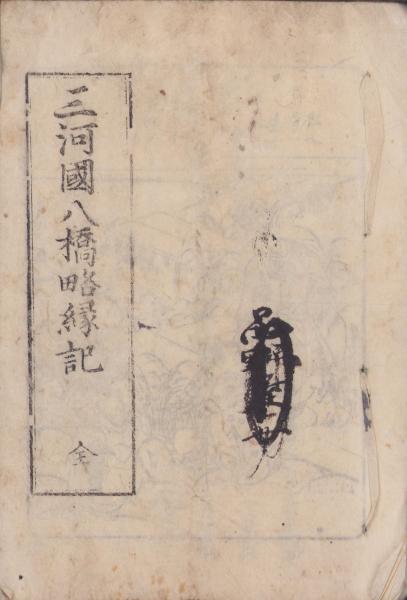 三河國八橋略縁記
全